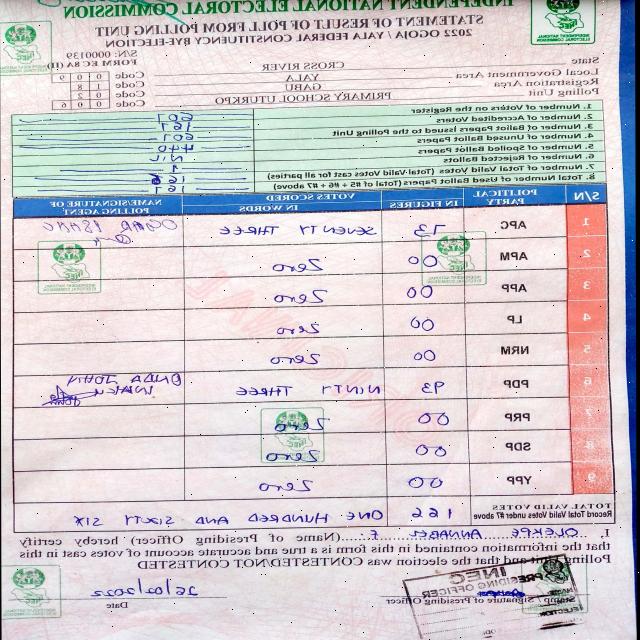 INDEPENDENT NATIONAL ELECTORAL COMMISSION
STATEMENT OF RESULT OF POLL FROM POLLING UNIT
2022 OGOJA / YALA FEDERAL CONSTITUENCY BYE-ELECTION
S/N: 0000139
FORM EC 8A (II)
State CROSS RIVER Code
Local Government Area YALA Code 1 8
Registration Area GABU Code
Polling Unit PRIMARY SCHOOL UTURKPO Code 0 0 6
1. Number of Voters on the Register 607
2. Number of Accredited Voters 167
3. Number of Ballot Papers Issued to the Polling Unit 607
4. Number of Unused Ballot Papers 440
5. Number of Spoiled Ballot Papers NIL
6. Number of Rejected Ballots 1
7. Number of Total Valid Votes (Total Valid Votes cast for all parties) 166
8. Total Number of Used Ballot Papers (Total of #5 + #6 + #7 above) 167
S/N POLITICAL PARTY VOTES SCORED IN FIGURES IN WORDS NAME/SIGNATURE OF POLLING AGENT
1 APC 73 SEVENTY THREE
2 APM 00 Zero
3 APP 00 Zero
4 LP 00 Zero
5 NRM 00 Zero
6 PDP 93 NINTY THREE ONDA JOHN
7 PRP 00 Zero
8 SDP 00 Zero
9 YPP 00 Zero
TOTAL VALID VOTES
Record Total Valid Votes under #7 above 166 ONE HUNDRED AND SIXTY SIX
I, ANNABEL F. (Name of Presiding Officer) hereby certify
that the information contained in this form is a true and accurate account of votes cast in this
Polling Unit and that the election was CONTESTED/NOT CONTESTED
26/02/2022
Stamp / Signature of Presiding Officer Date
INEC
PRESIDING OFFICER